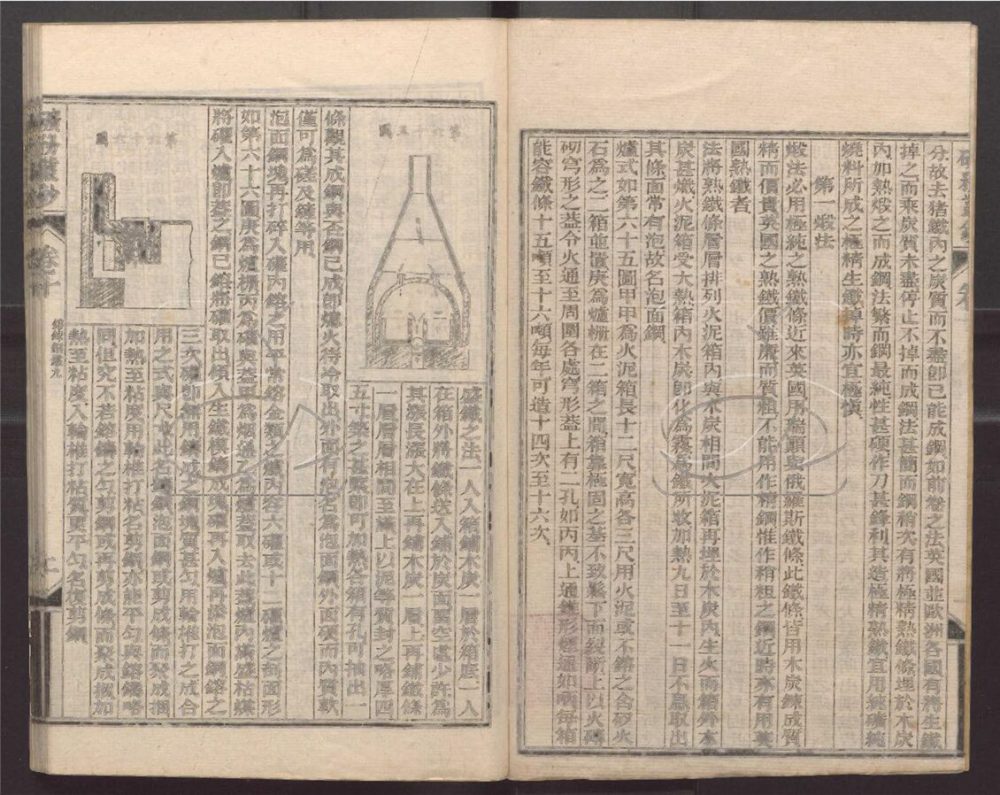 分故去猪鐵內之炭質而不盡卽已能成鋼如前卷之法英國並歐洲各國有將生鐵
掉之而乘炭質未盡停止不掉而成鋼法甚簡而鋼稍次有將極精熟鐵條埋於木炭
內加熱煅之而成鋼法繁而鋼最純性甚硬作刀甚鋒利其造極精熟鐵宜用純礦純
燒料所成之極精生鐵掉時亦宜極愼
第一煅法
煅法必用極純之熟鐵條近來英國用瑞顛與俄羅斯鐵條此鐵條皆用木炭鍊成質
精而價貴英國之熟鐵價雖廉而質粗不能用作精鋼惟作稍粗之鋼近時亦有用英
國熟鐵者
法將熟鐵條層層排列火泥箱內與木炭相間火泥箱再埋於木炭內生火而箱外木
炭甚熾火泥箱受大熱箱內木炭卽化為霧為鐵所收加熱九日至十一日不息取出
其條面常有泡故名泡面鋼
爐式如第六十五圖甲甲為火泥箱長十二尺寬高各三尺用火泥或不鎔之合砂火
石為之二箱並置庚為爐柵在二箱之間箱靠極固之基不致鬆下面 上以火磚
砌穹形之蓋令火通至周圍各處穹形蓋上有一孔如丙丙上通錐形爐通如 每箱
能容鐵條十五噸至十六噸每年可造十四次至十六次
第六十五圖
盛鐵之法一人入箱鋪木炭一層於箱底一人
在箱外將鐵條送入鋪於炭面留空處少許為
其漲長漲大在上再鋪木炭一層上再鋪鐵條
一層層層相間至滿上以泥等質封之略厚四
五寸築之甚緊卽可加熱各箱有孔可抽出一
條觀其成鋼與否鋼已成卽熄火待冷取出外面有泡名為泡面鋼外面硬而內質軟
僅可為磋及鏟等用
泡面鋼塊再打碎入礶內鎔之用平常鎔金類之爐內容六礶或十二礶爐之剖面形
如第六十六圖庚為爐柵丙為礶與蓋甲為烟通乙為爐蓋取去此蓋爐內滿盛枯煤
將礶入爐卽蓋之鋼已鎔將礶取出傾入生鐵模鑄成塊礶再入爐再添泡面鋼鎔之
第六十六圖
三次礶卽難用鑄成之鋼塊質甚勻用輪椎打之成合
用之式與尺寸此名鑄鋼泡面鋼或剪成條而聚成捆
加熱至粘度用輪椎打粘名剪鋼亦能平勻與鎔鑄略
同但究不若鎔鑄之勻剪鋼或再剪成條而聚成捆加
熱至粘度入輪椎打粘質更平勻名複剪鋼
卷十